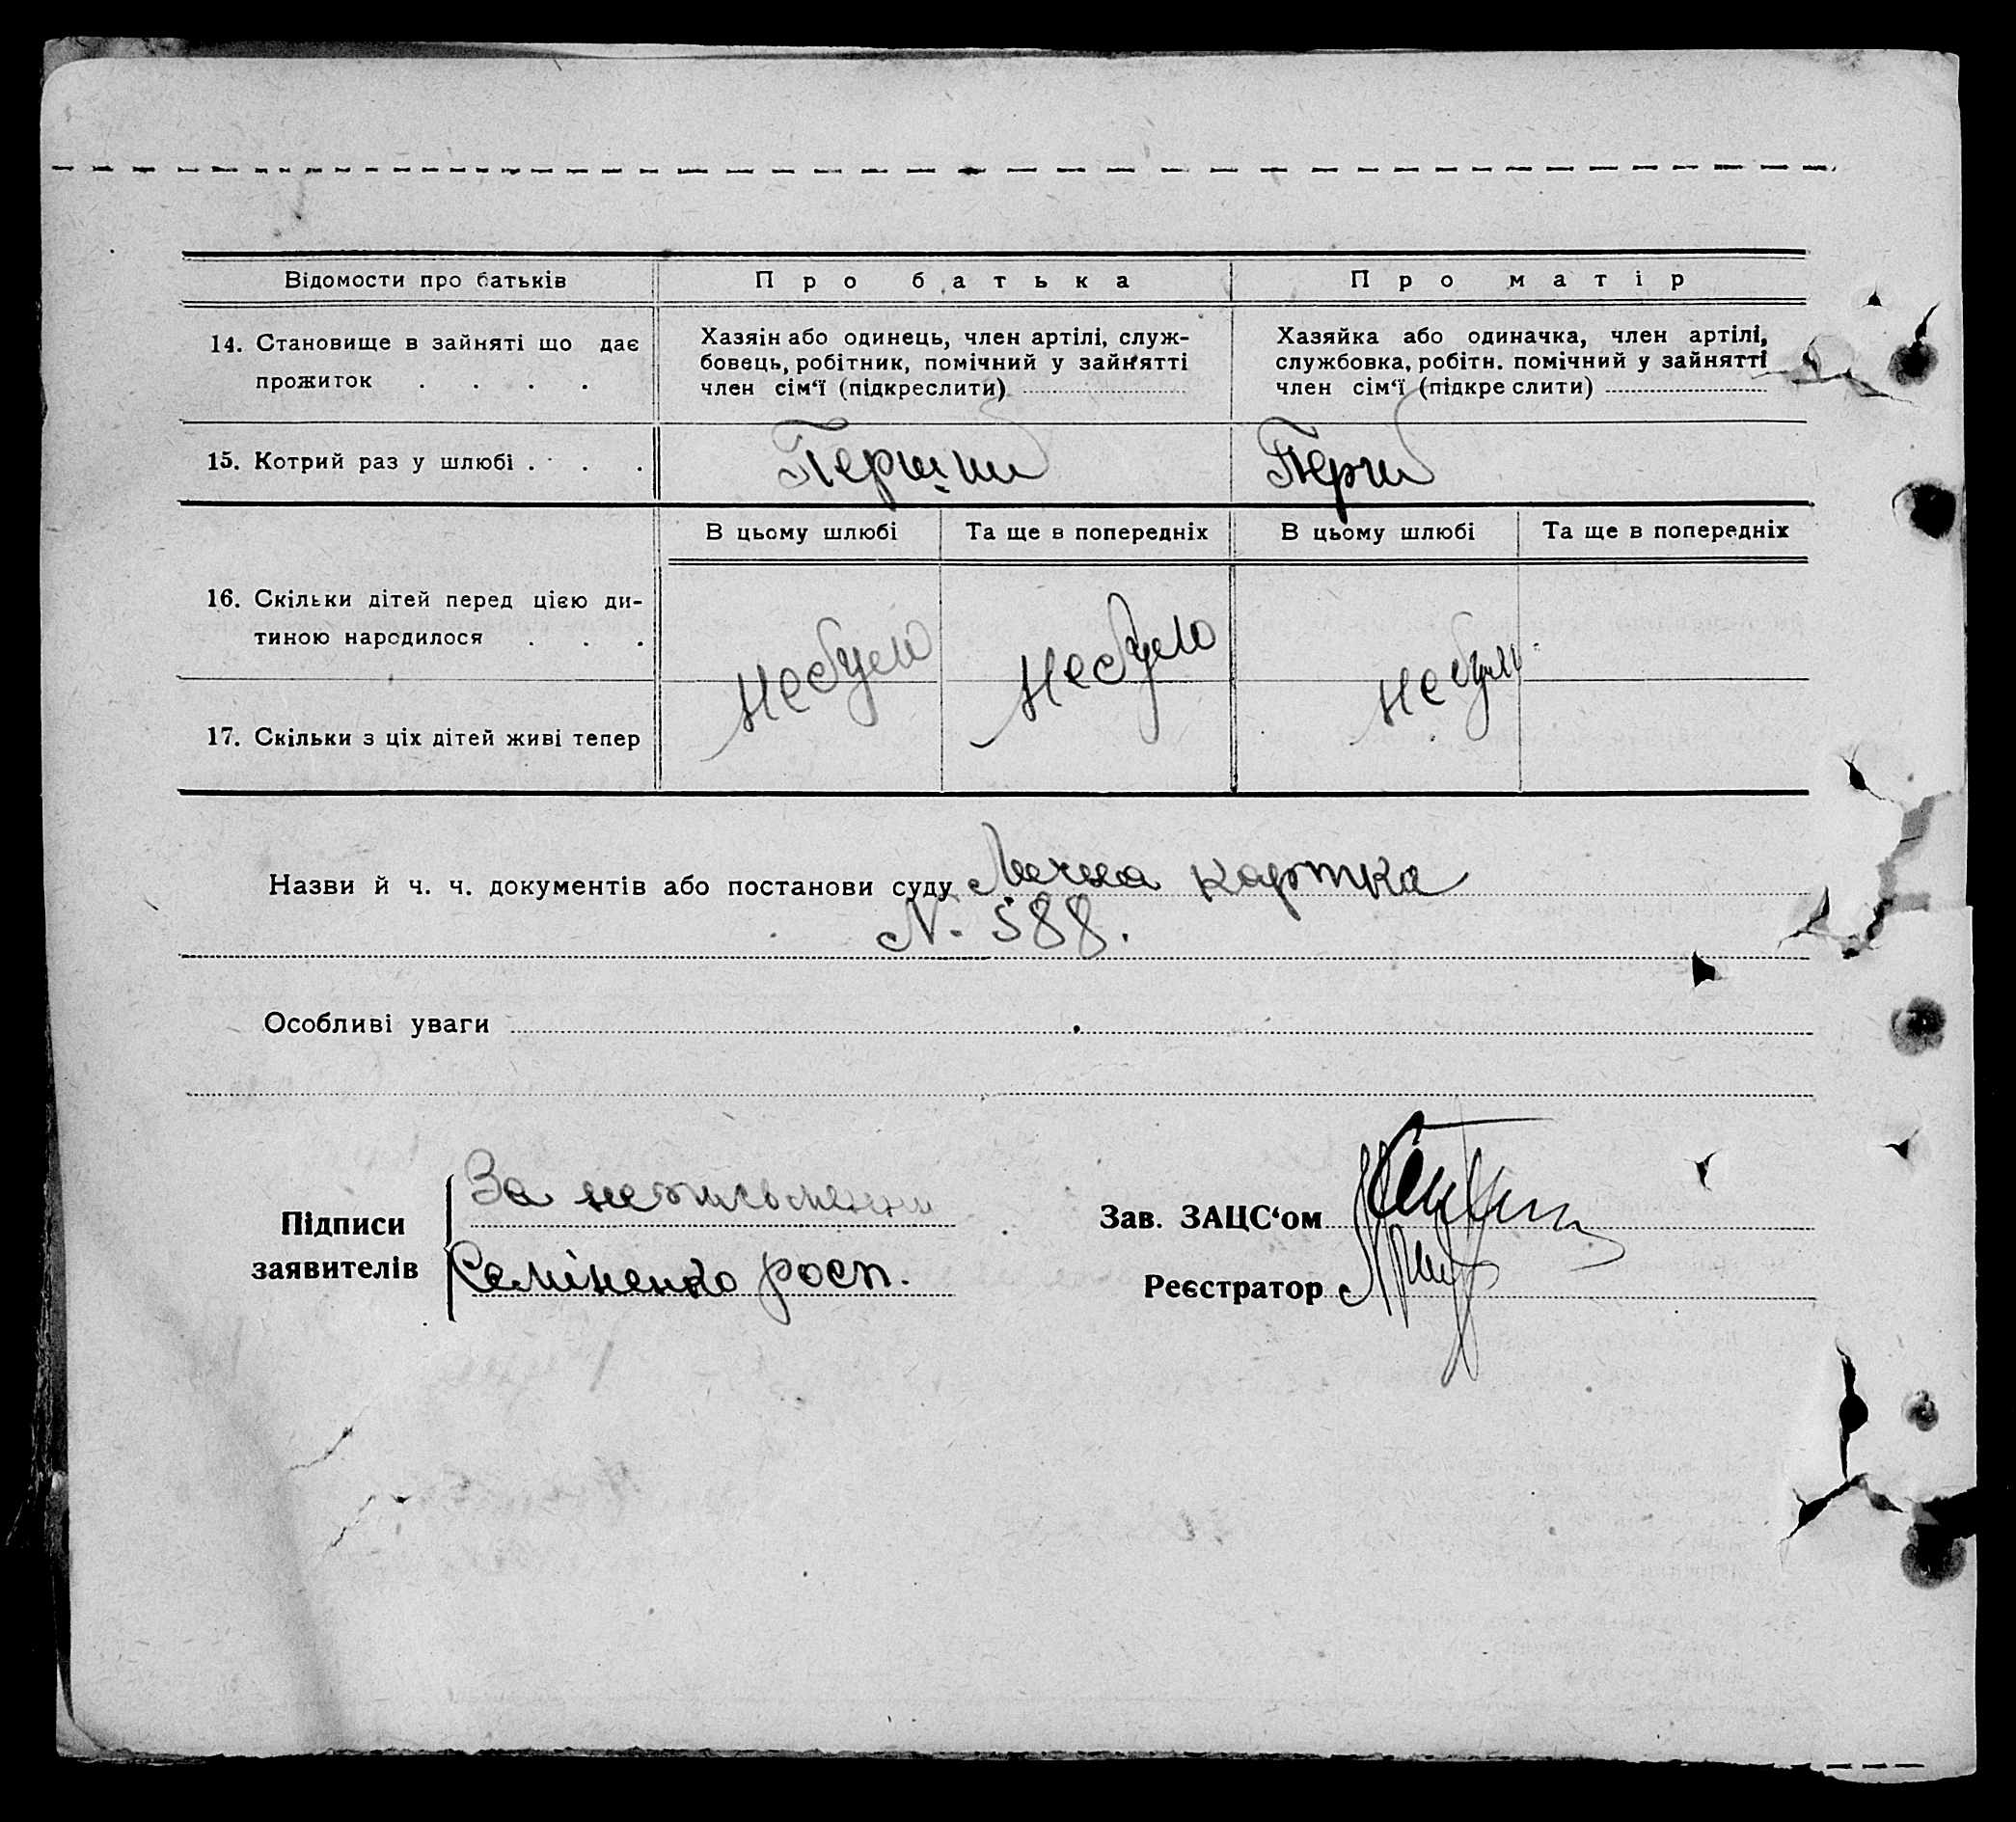 Відомости про батьків Про батька Про матір
14. Становище в зайняті що дає
прожиток . . . .
Хазяін або одинець, член артілі, служ-
бовець, робітник, помічний у зайнятті
член сім‘ї (підкреслити)
Хазяйка або одиначка, член артілі,
службовка, робітн. помічний у зайнятті
член сім‘ї (підкре слити)
15. Котрий раз у шлюбі . . . Перший Перш
В цьому шлюбі Та ще в попередніх В цьому шлюбі Та ще в попередніх
16. Скільки дітей перед цією ди-
тиною народилося . . .
Небуло Небуло Небуло
17. Скільки з ціх дітей живі тепер
Назви й ч. ч. документів або постанови суду Лична картка
N. 588.
Особливі уваги
Підписи
заявителів
За неписьменни
Семіненко росп.
Зав. ЗАЦС‘ом
Реєстратор